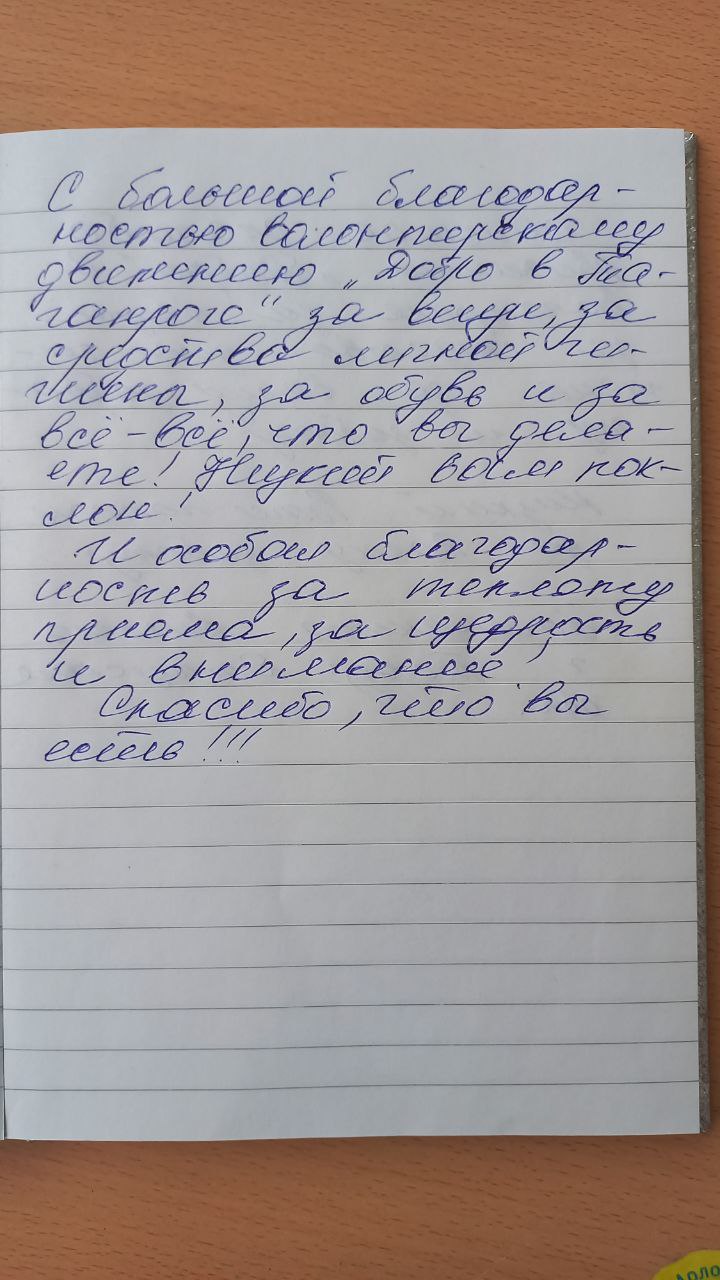 С большой благодар-
ностью волонтёрскому
движению „Добро в Та-
ганроге" за вещи, за
средства личной ги-
гиены, за обувь и за
всё-всё, что вы дела-
ете! Низкий вам пок-
лон!
И особая благодар-
ность за теплоту
приёма, за щедрость
и внимание!
Спасибо, что вы
есть!!!